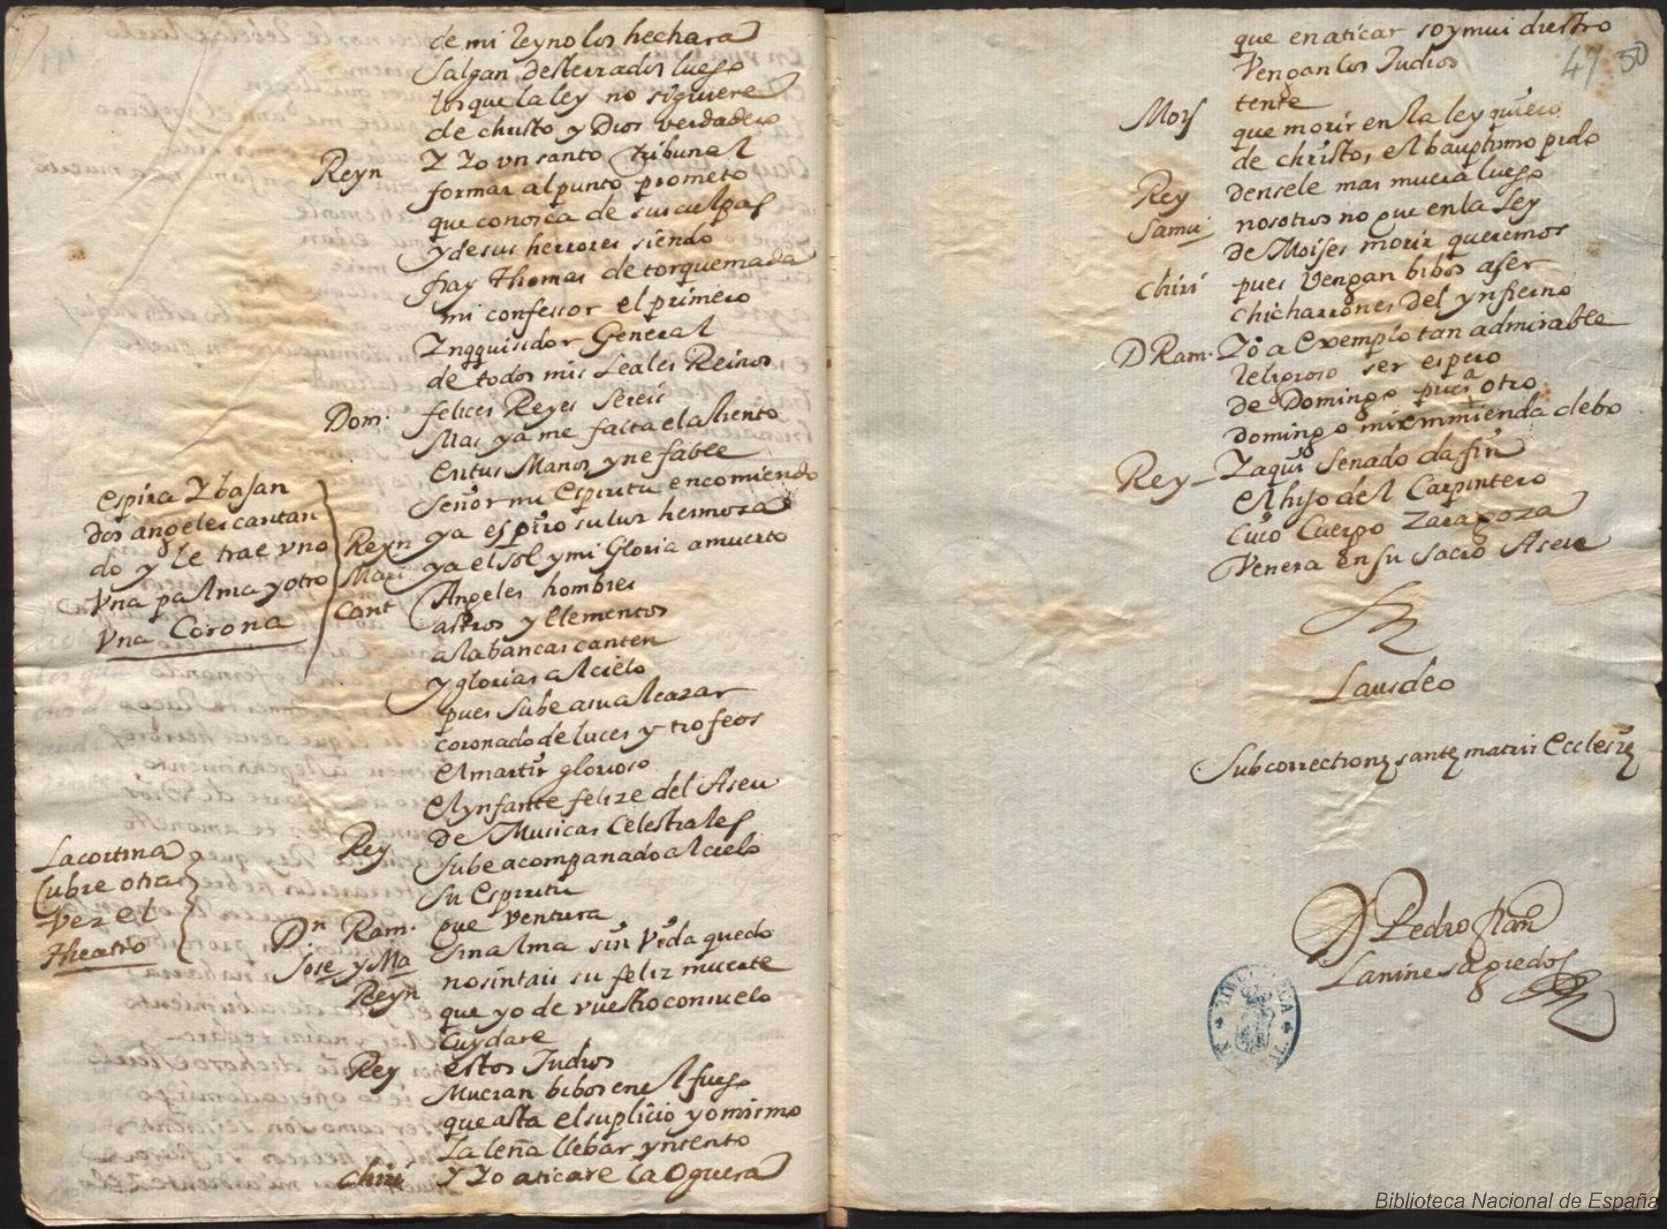 de mi Reyno los hechara
salgan desterrados luego
los que la ley no siguiere
de christo y Dios verdadero
Reyn Y Yo vn santo tribunal
formar al punto prometo
que conosca de sus culpas
y de sus herrores siendo
fray Thomas de torquemada
mi confessor el primero
Ynqquisidor General
de todos mis Leales Reinos
Dom. felices Reyes sereis
Mas ya me falta el aliento
en tus Manos ynefable
señor mi Espiritu encomiendo
espira Y bajan
dos angeles cantan
do y le trae vno
Vna palma y otro
Vna Corona
Reyn ya espiro su luz hermoza
Mari ya el sol y mi Gloria a muerto
Cant Angeles hombres
astros y Elementos
alabancas canten
y glorias al cielo
pues sube a su alcazar
coronado de luces y trofeos
el martir glorioso
el ynfante felize del Aseu
Rey de Musicas Celestiales
sube acompanado al cielo
su Espiritu
La cortina
Cubre otra
Vez el
theatro
Dn Ram. que Ventura
Jose y Ma sin alma sin Vida quedo
Reyn no sintais su feliz muerte
que yo de vuestro consuelo
Cuydare
Rey estos Judios
Mueran bibos en el fuego
que asta el suplicio yo mismo
La leña llebar yntento
Chiri Y Yo aticare la Oguera
47 50
que en aticar soy mui diestro
Vengan los Judios
Moys tente
que morir en la ley quiero
de christo, el bauptismo pido
Rey densele mas muera luego
Samu nosotros no que en la Ley
de Moises morir queremos
Chiri pues Vengan bibos a ser
chicharrones del ynfierno
D Ram. Yo a Exemplo tan admirable
Religioso ser espero
de Domingo pues a otro
Domingo mi emmienda debo
Rey Y aqui senado da fin
el hijo del Carpintero
Cuio Cuerpo Zaragoza
Venera en su sacro Aseu
Laus deo
Sub correctione sante matris Ecclesie
D Pedro Fran
Lanine sagredo
Biblioteca Nacional de España